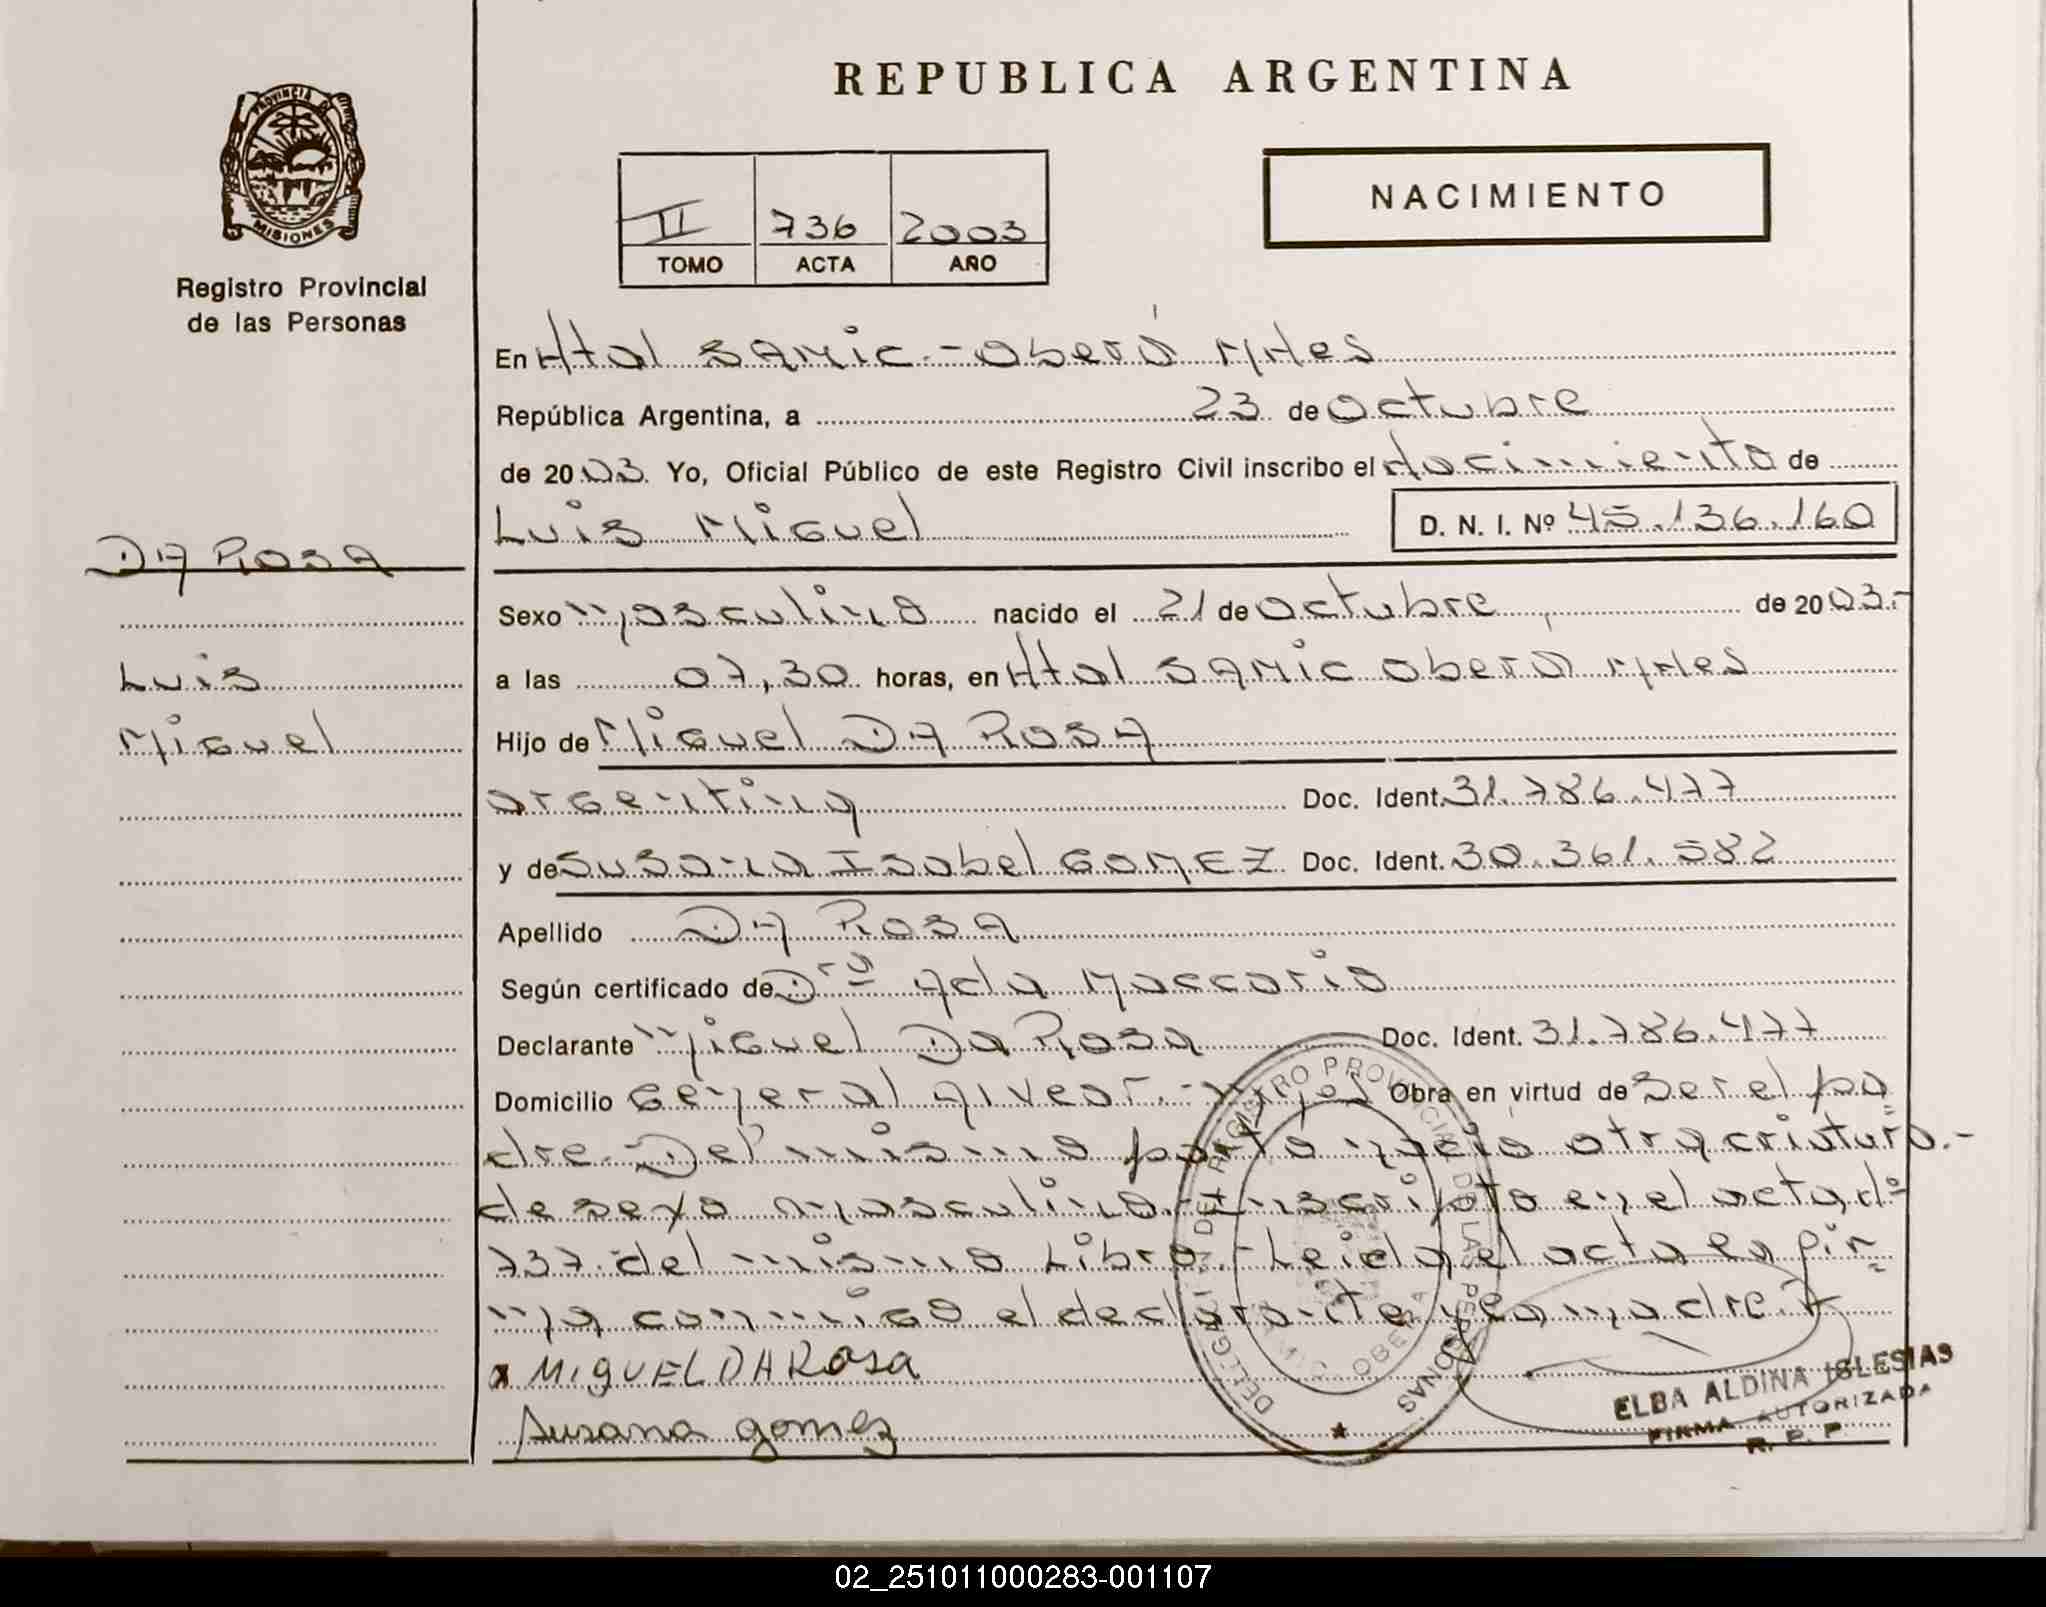 REPUBLICA ARGENTINA
PROVINCIA DE
MISIONES
Registro Provincial
de las Personas
II 736 2003
TOMO ACTA AÑO
NACIMIENTO
En Htal SAMIC - Oberá Mnes
República Argentina, a 23 de Octubre
de 2003. Yo, Oficial Público de este Registro Civil inscribo el Nacimiento de
Luis Miguel D. N. I. Nº 45.136.160
DA ROSA
Luis
Miguel
Sexo masculino nacido el 21 de Octubre de 2003.-
a las 07,30 horas, en Htal SAMIC Oberá Mnes
Hijo de Miguel DA ROSA
argentina Doc. Ident. 31.786.477
y de Susana Isabel GOMEZ Doc. Ident. 30.361.582
Apellido DA ROSA
Según certificado de Dra Ada Maccario
Declarante Miguel Da Rosa Doc. Ident. 31.786.477
Domicilio General Alvear.- Mnes Obra en virtud de ser el pa=
dre. Del mismo parto nacio otra criatura.-
de sexo masculino.- Inscripto en el acta, nº
737 del mismo Libro.- Leida el acta la fir=
ma conmigo el declarante y la madre.
x MIGUEL DA ROSA
Susana gomez
DELEGACION DEL REGISTRO PROVINCIAL DE LAS PERSONAS
SAMIC OBERA
ELBA ALDINA IGLESIAS
FIRMA AUTORIZADA
R. P. P
02_251011000283-001107